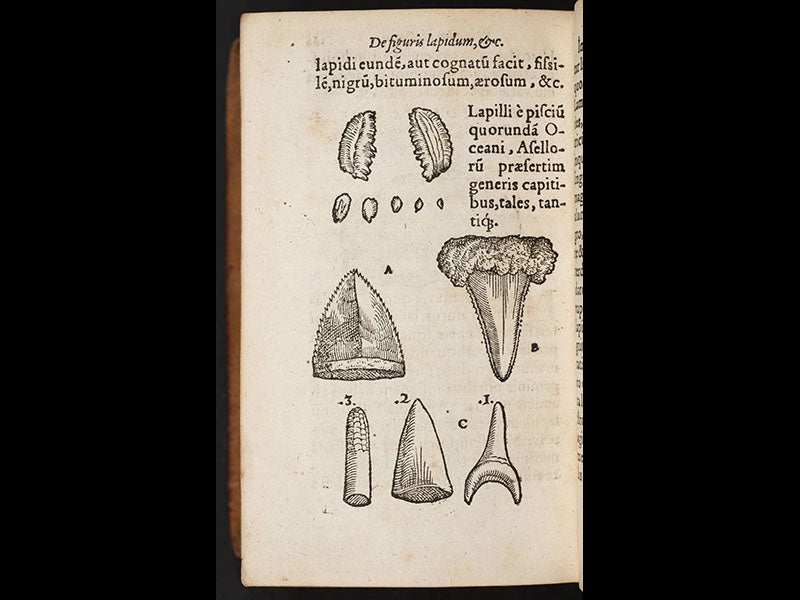 De figuris lapidum, &c.
lapidi eundē, aut cognatū facit, fiſsi-
lē, nigrū, bituminoſum, æroſum, &c.
Lapilli è piſciū
quorundā O-
ceani, Aſello-
rū præſertim
generis capiti-
bus, tales, tan-
tiq́;.
A
B
.3.
.2.
.1.
C